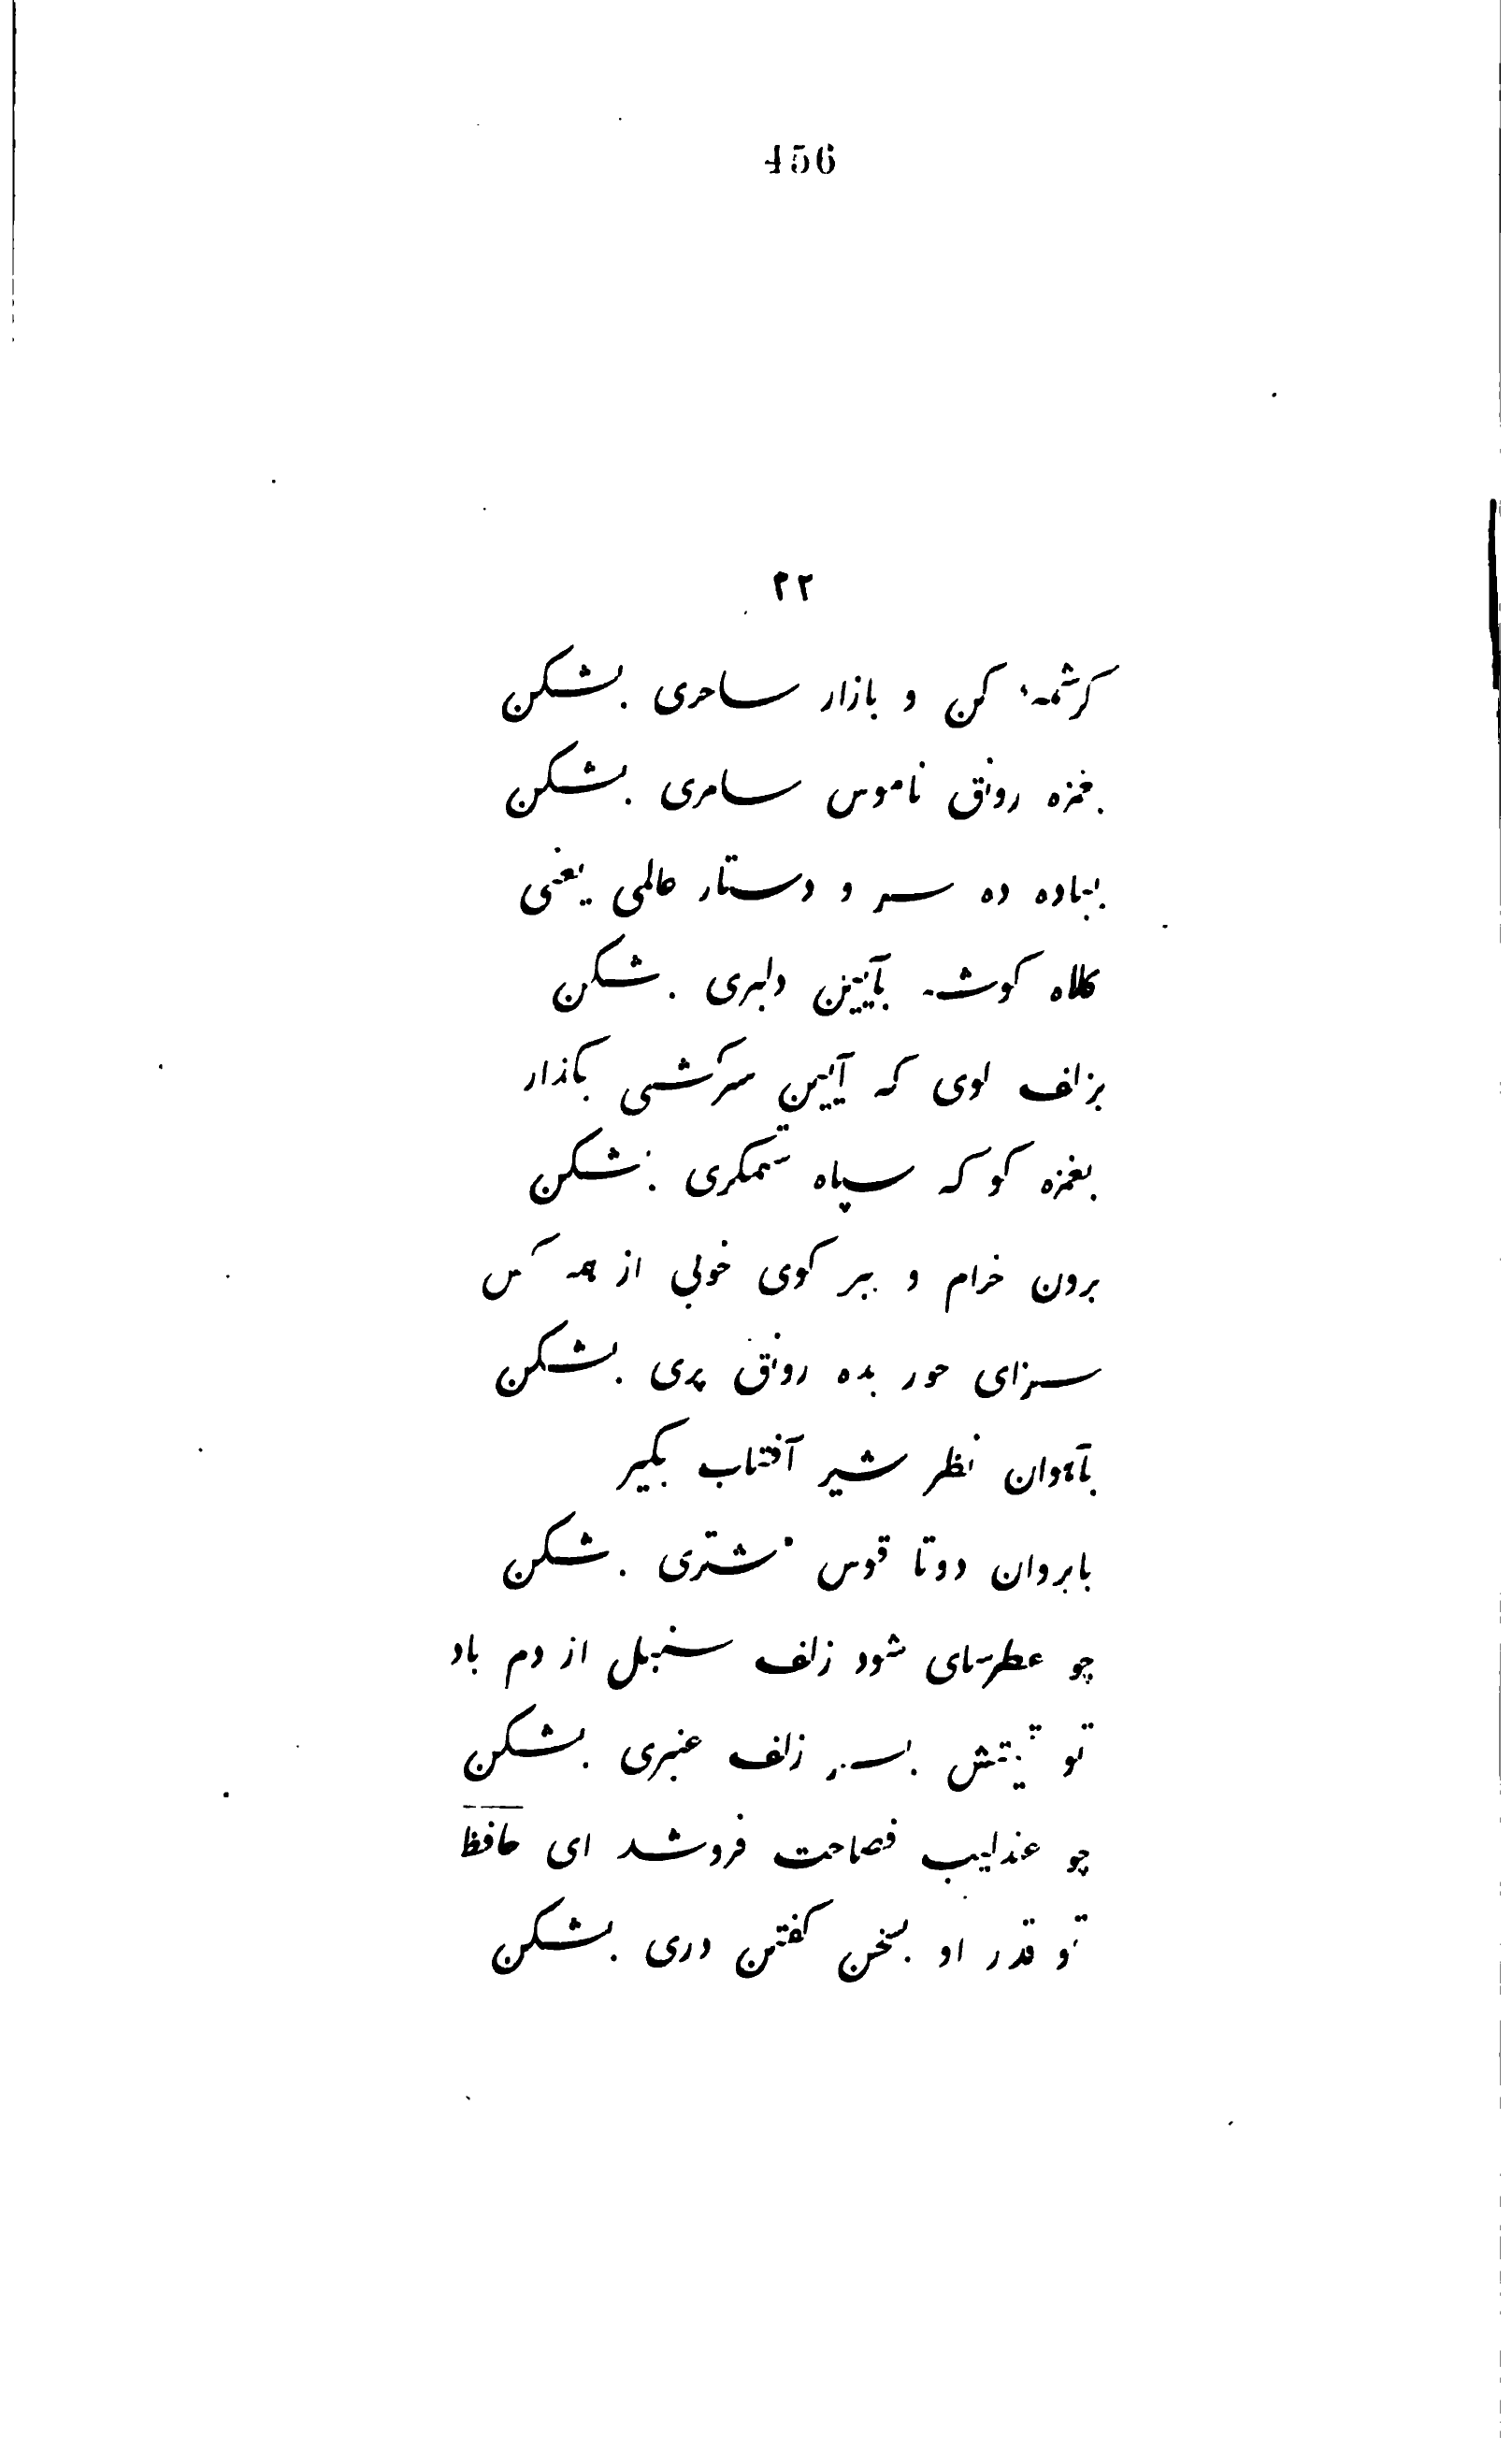 456
۲۲
کرشمهٔ کن و بازار ساحری بشکن
بغمزه رونق ناموس سامری بشکن
بباده ده سر و دستار عالمی یعنی
کلاه کوشه بآیین دلبری بشکن
بزلف کوی که آیین سرکشی بکذار
بغمزه کو که سپاه ستمکری بشکن
برون خرام و ببر کوی خوبی از همه کس
سزای حور بده رونق پری بشکن
بآهوان نظر شیر آفتاب بکیر
بابروان دوتا قوس مشتری بشکن
چو عطرسای شود زلف سنبل از دم باد
تو قیمتش بسر زلف عنبری بشکن
چو عندلیب فصاحت فروشد ای حافظ
تو قدر او بسخن کفتن دری بشکن